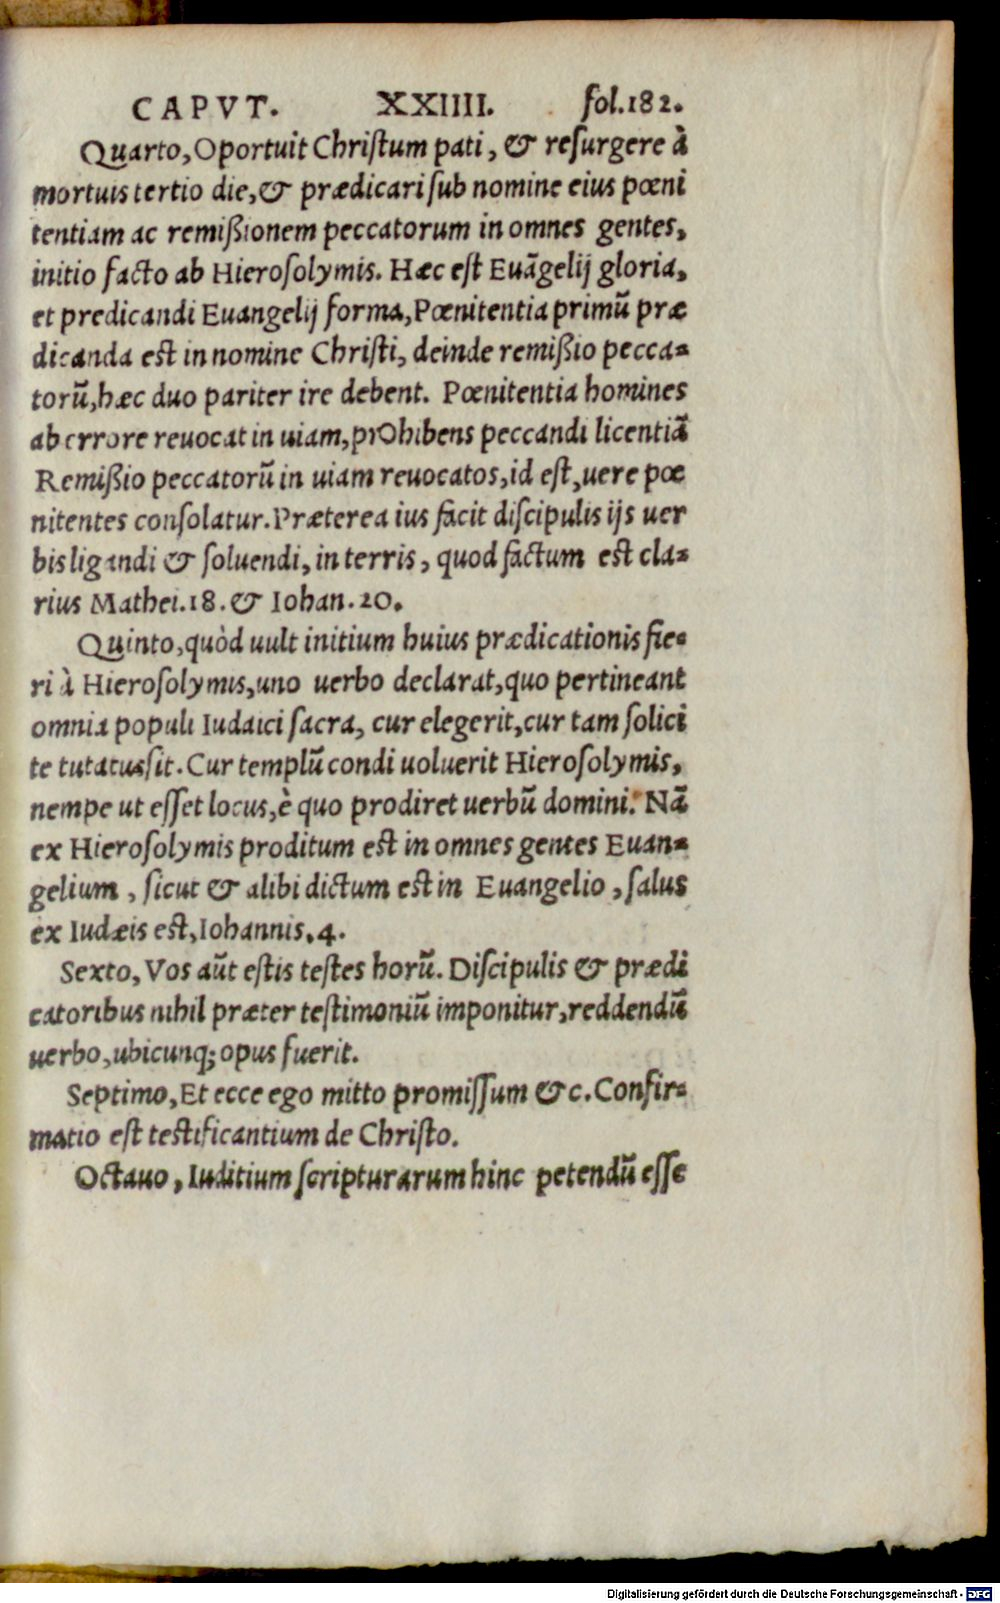 CAPVT. XXIIII. fol.182.
Quarto, Oportuit Christum pati, & resurgere à
mortuis tertio die, & prædicari sub nomine eius pœni
tentiam ac remißionem peccatorum in omnes gentes,
initio facto ab Hierosolymis. Hæc est Euãgelij gloria,
et predicandi Euangelij forma, Pœnitentia primũ præ
dicanda est in nomine Christi, deinde remißio pecca-
torũ, hæc duo pariter ire debent. Pœnitentia homines
ab errore reuocat in uiam, prOhibens peccandi licentiã
Remißio peccatorũ in uiam reuocatos, id est, uere pœ
nitentes consolatur. Præterea ius facit discipulis ijs uer
bis ligandi & soluendi, in terris, quod factum est cla-
rius Mathei.18. & Iohan.20.
Quinto, quòd uult initium huius prædicationis fie-
ri à Hierosolymis, uno uerbo declarat, quo pertineant
omnia populi Iudaici sacra, cur elegerit, cur tam solici
te tutatus sit. Cur templũ condi uoluerit Hierosolymis,
nempe ut esset locus, è quo prodiret uerbũ domini. Nã
ex Hierosolymis proditum est in omnes gentes Euan-
gelium, sicut & alibi dictum est in Euangelio, salus
ex Iudæis est, Iohannis.4.
Sexto, Vos aũt estis testes horũ. Discipulis & prædi
catoribus nihil præter testimoniũ imponitur, reddendũ
uerbo, ubicunq; opus fuerit.
Septimo, Et ecce ego mitto promissum &c. Confir-
matio est testificantium de Christo.
Octauo, Iuditium scripturarum hinc petendũ esse
Digitalisierung gefördert durch die Deutsche Forschungsgemeinschaft - DFG